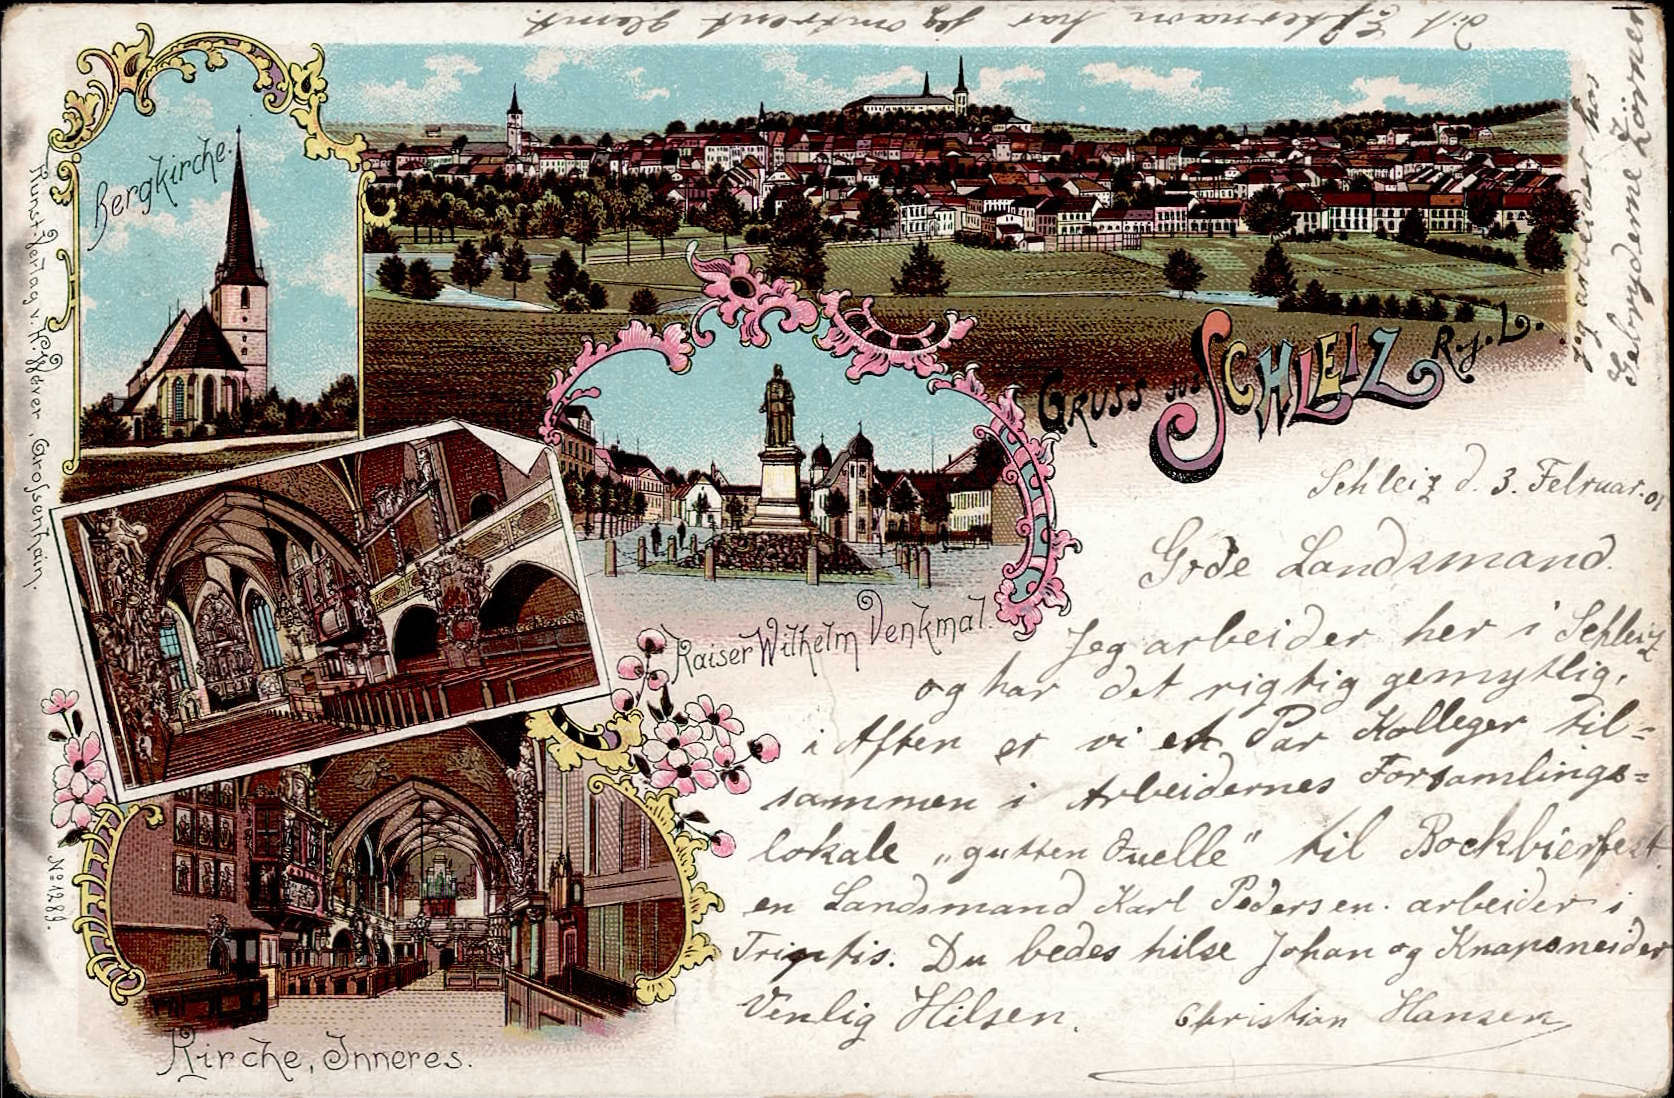 dit Efternavn har jeg omtrent glemt.
Bergkirche.
Kunst-Verlag v.
Grossenhain.
No 1289.
GRUSS aus SCHLEIZ R. j. L.
Kaiser Wilhelm Denkmal.
Kirche, Inneres.
Schleiz d. 3. Februar. 01
Gode Landsmand.
Jeg arbeider her i Schleiz
og har det rigtig gemytlig,
i Aften er vi et Par Kolleger til=
sammen i Arbeidernes Forsamlings=
lokale „gutten Quelle" til Bockbierfest.
en Landsmand Karl Pedersen. arbeider i
Triptis. Du bedes hilse Johan og
Venlig Hilsen. Christian Hansen
Jeg arbeider hos
Gebryderne